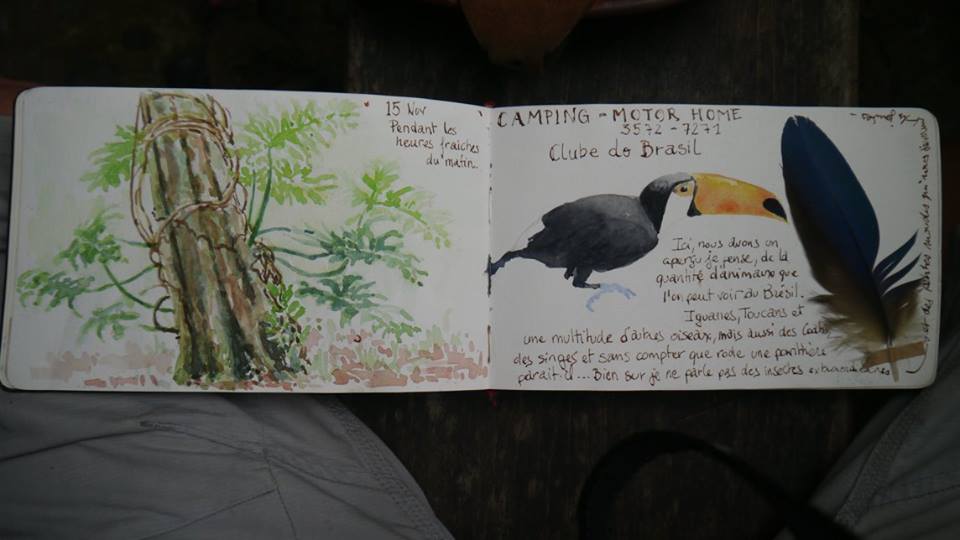 15 Nov
Pendant les
heures fraiches
du matin...
CAMPING - MOTOR HOME
3572 - 7271
Clube do Brasil
Ici, nous avons un
aperçu je pense, de la
quantité d'animaux que
l'on peut voir au Brésil.
Iguanes, Toucans et
une multitude d'autres oiseaux, mais aussi des
des singes et sans compter que rode une panthère
parait-il... Bien sur je ne parle pas des insectes
et des